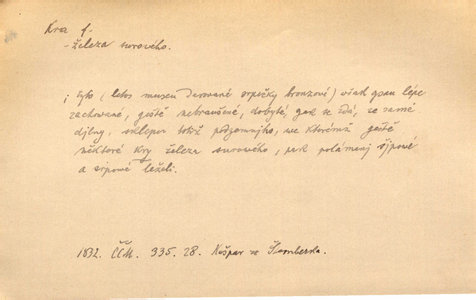 Kra f.
- železa surového.
; tyto (letos museu darované srpečky bronzové) však gsau lépe
zachované, geště nebraušené, dobyté, gak se zdá, ze samé
djlny, sklepu totiž podzemnjho, we kterémž geště
některé kry železa surového, pak polámaný
a srpowé leželi.
1832. ČČM. 335. 28. Košpar ze Šternberka.